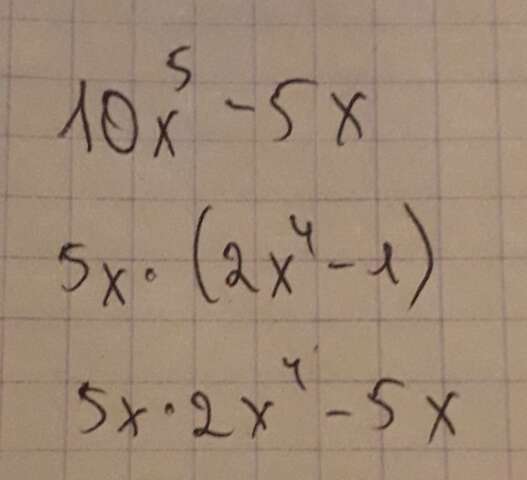 10x⁵ - 5x
5x · (2x⁴ - 1)
5x · 2x⁴ - 5x